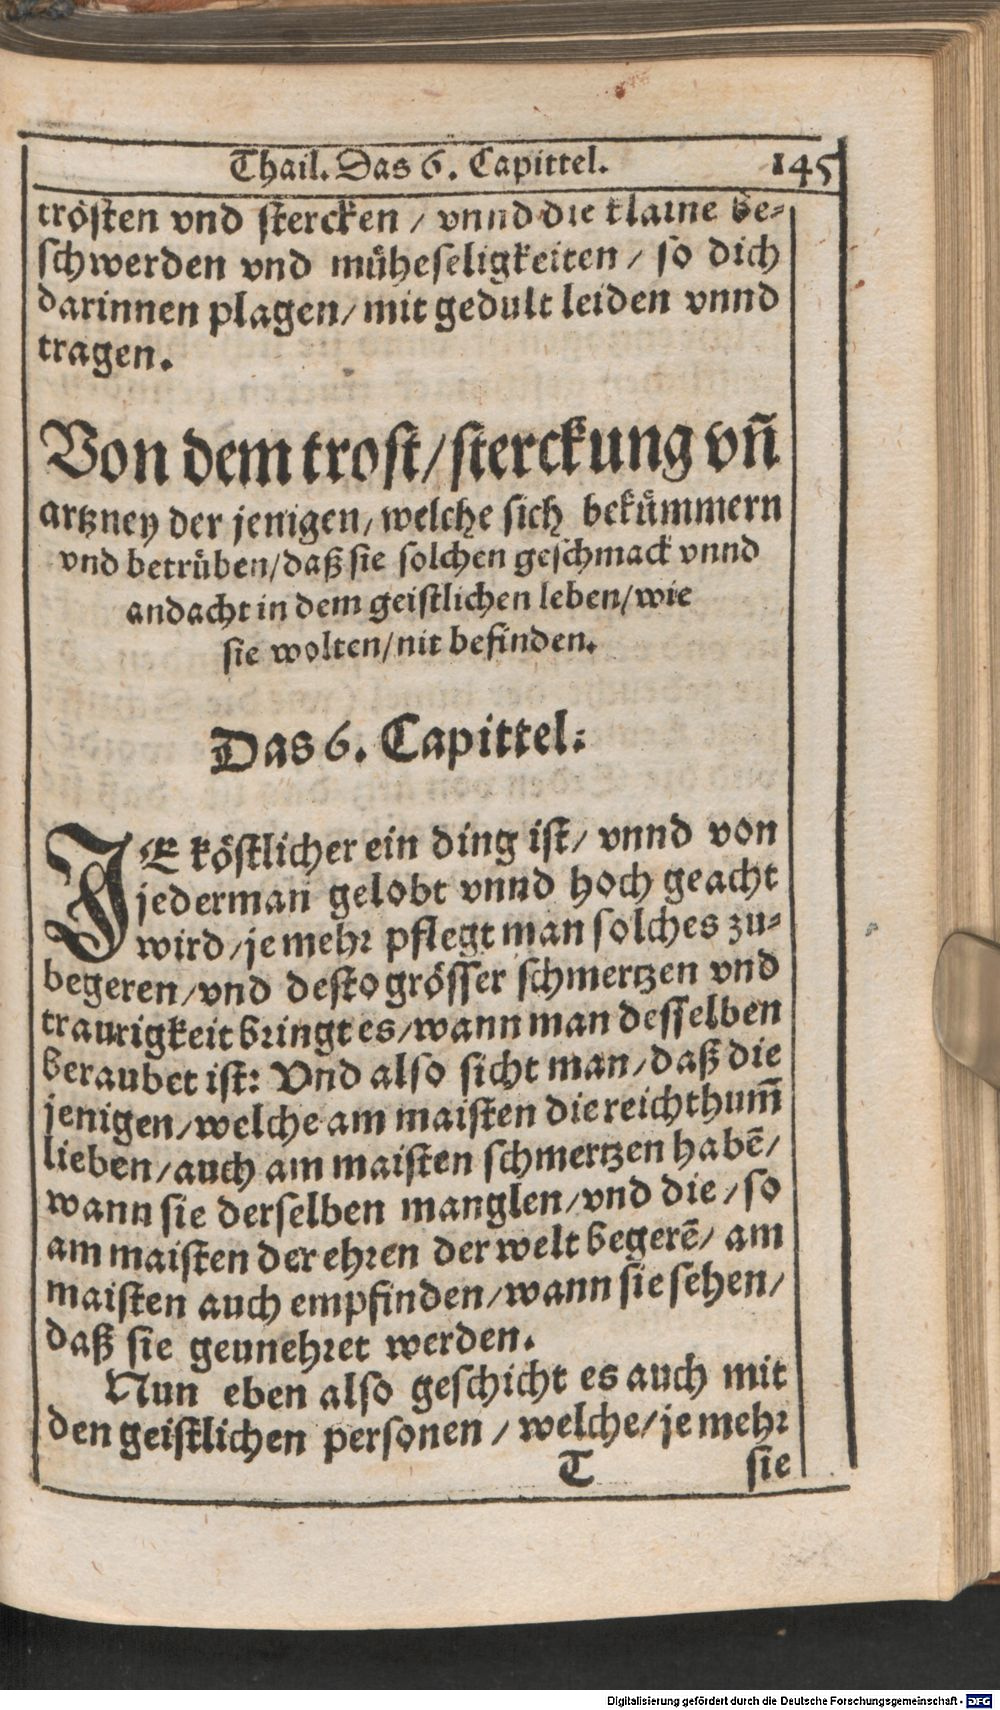 Thail. Das 6. Capittel. 145
trösten vnd stercken / vnnd die klaine be-
schwerden vnd müheseligkeiten / so dich
darinnen plagen / mit gedult leiden vnnd
tragen.
Von dem trost / sterckung vñ
artzney der jenigen, welche sich bekümmern
vnd betrüben / daß sie solchen geschmack vnnd
andacht in dem geistlichen leben / wie
sie wolten / nit befinden.
Das 6. Capittel.
JE köstlicher ein ding ist / vnnd von
jederman gelobt vnnd hoch geacht
wird / je mehr pflegt man solches zu-
begeren / vnd desto grösser schmertzen vnd
traurigkeit bringt es / wann man desselben
beraubet ist: Vnd also sicht man / daß die
jenigen / welche am maisten die reichthum̃
lieben / auch am maisten schmertzen habẽ /
wann sie derselben manglen / vnd die / so
am maisten der ehren der welt begerẽ / am
maisten auch empfinden / wann sie sehen /
daß sie geunehret werden.
Nun eben also geschicht es auch mit
den geistlichen personen / welche / je mehr
T sie
Digitalisierung gefördert durch die Deutsche Forschungsgemeinschaft - DFG